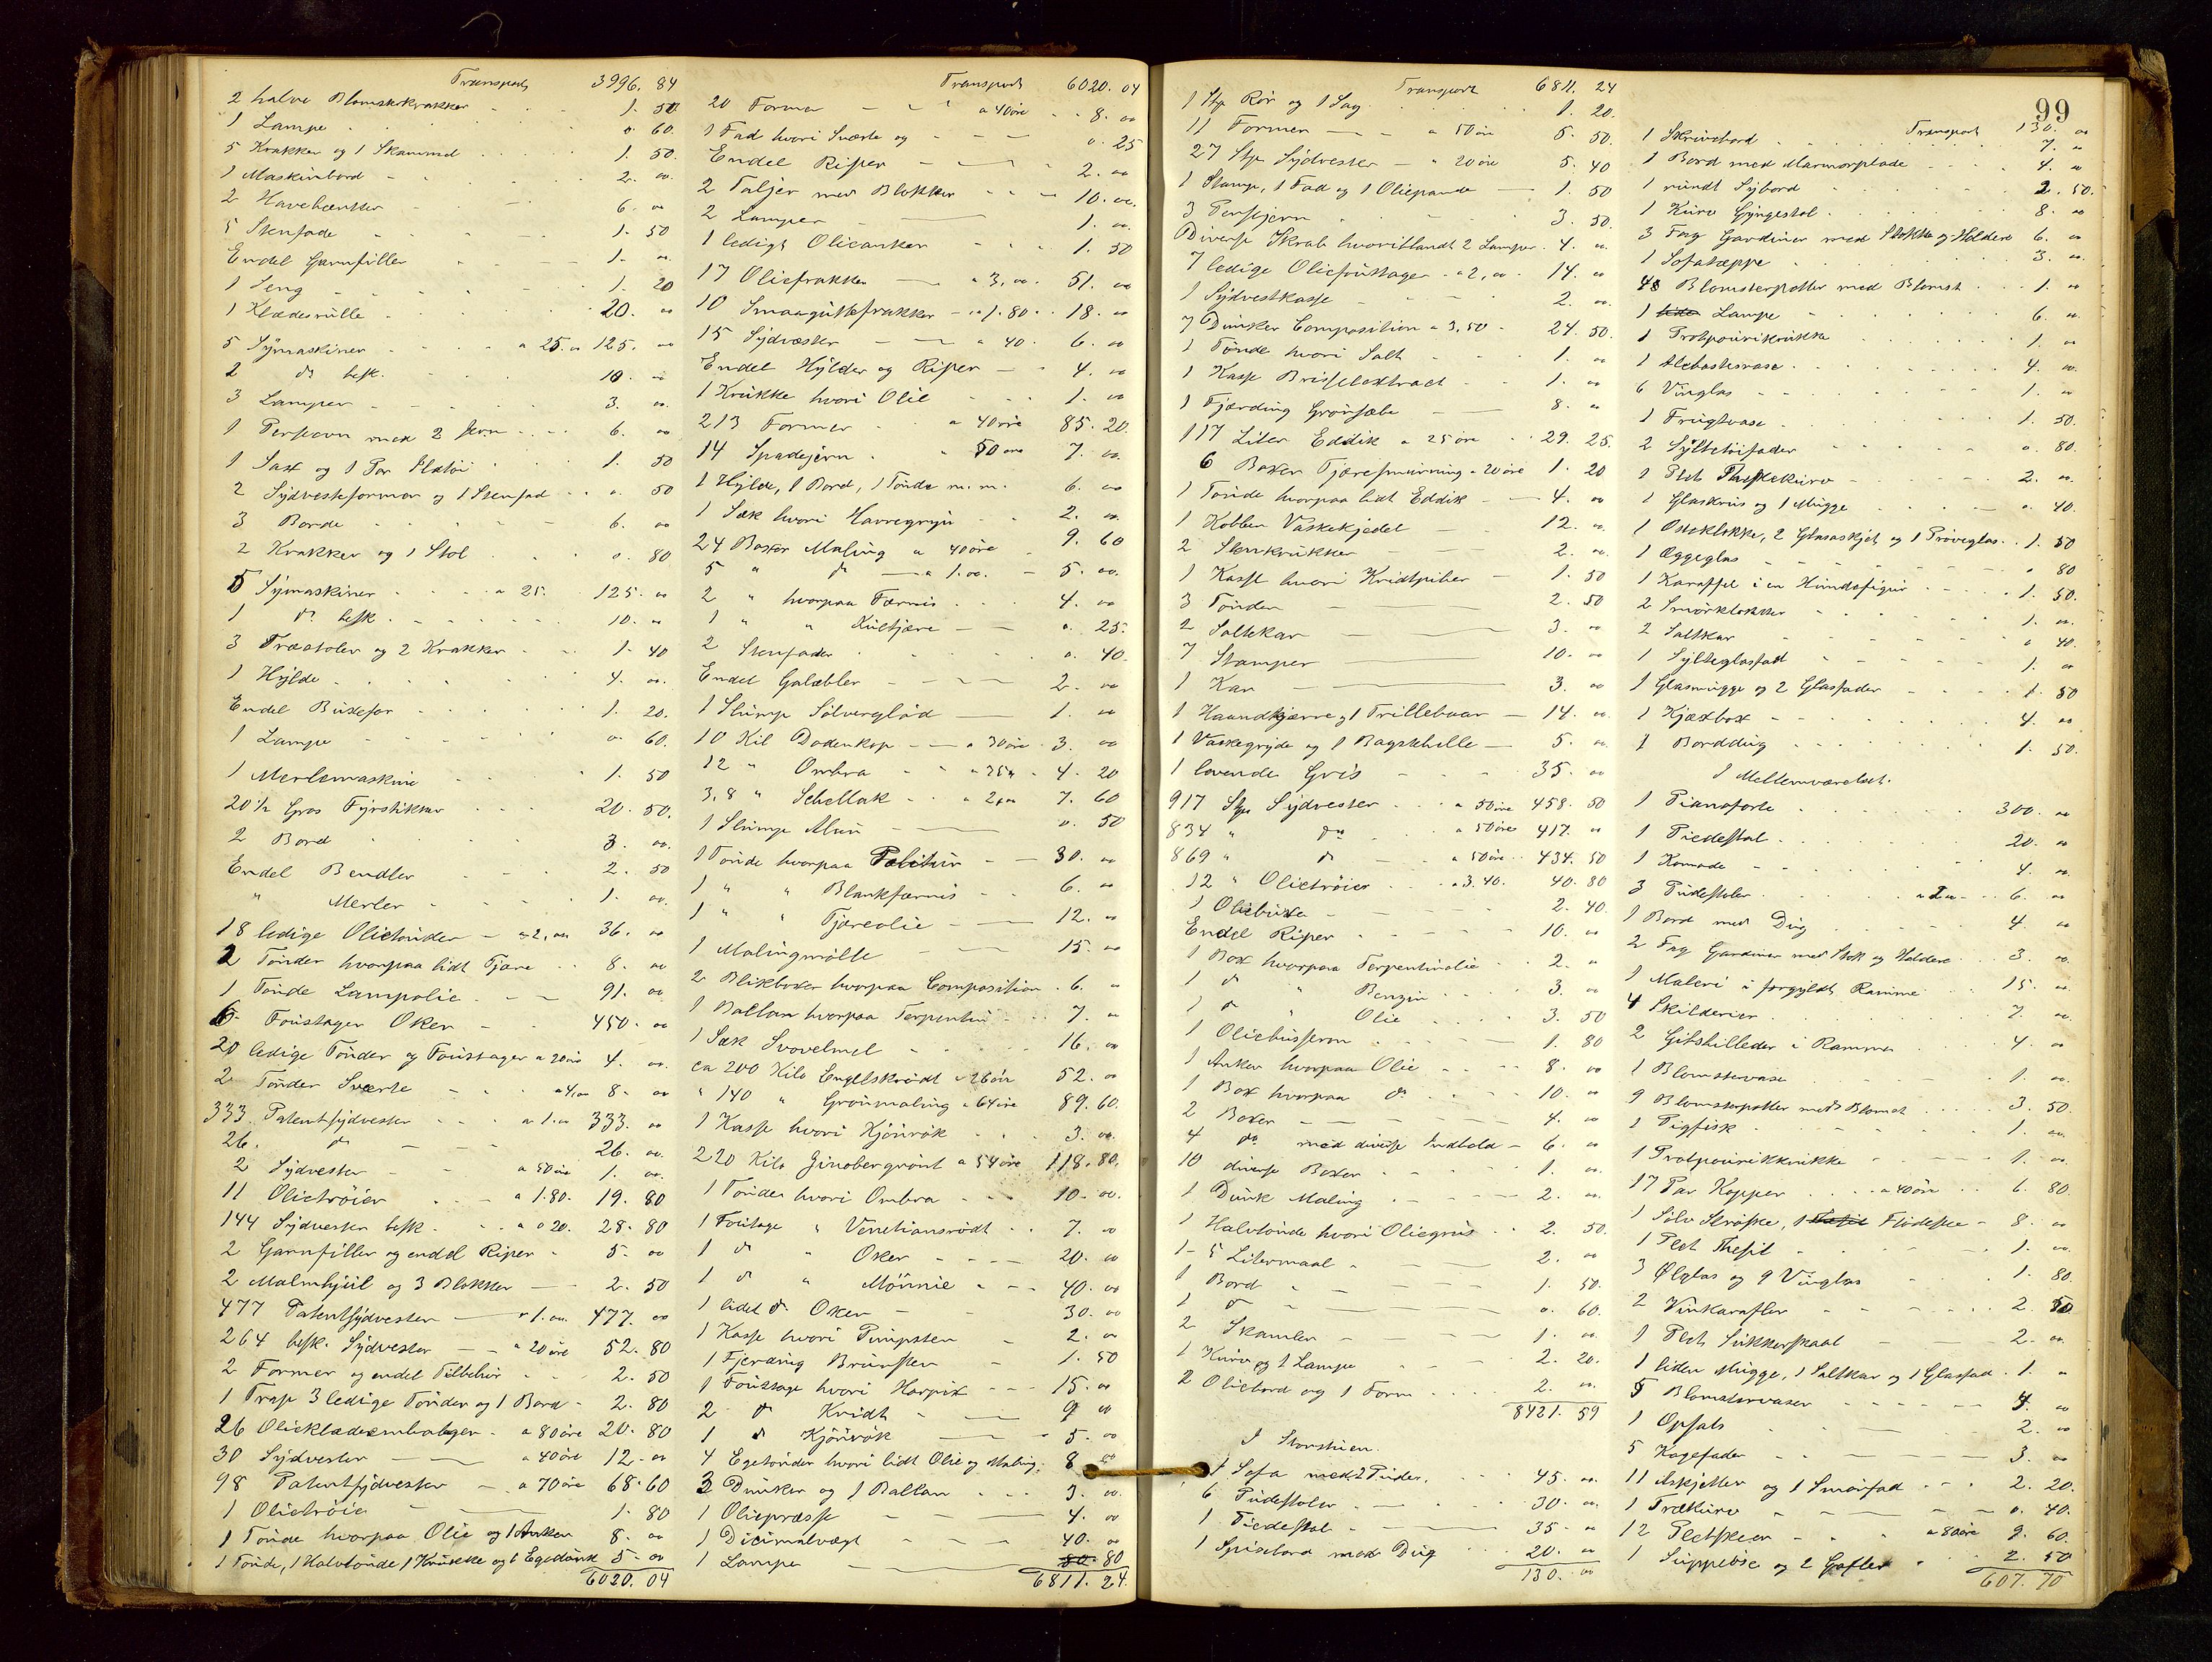 Transport 3996. 84
2 halve Blomsterkrakker 1. 50
1 Lampe 0. 60.
5 Krakker og 1 Skammel 1. 50.
1 Maskinbord 2. 00.
2 Havebænker 6. 00
5 Stenfade 1. 50
Endel Garnfiller 1. 00.
1 Seng 1. 20
1 Klædesrulle 20. 00
5 Symaskiner a 25. 00 125. 00
2 do besk. 10. 00
3 Lamper 3. 00.
1 Perseovn med 2 Jern 6. 00
1 Sax og 1 Par 1. 50
2 Sydvesteformer og 1 Stenfad 0. 50
3 Borde 6. 00
2 Krakker og 1 Stol 0. 80
5 Symaskiner a 25. 125. 00
1 do besk. 10. 00
3 Træstoler og 2 Krakker 1. 40
1 Hylde 4. 00.
Endel Buxefor 1. 20.
1 Lampe 0. 60.
1 Merlemaskine 1. 50
20½ Gros Fyrstikker 20. 50.
2 Bord 3. 00.
Endel Bendler 2. 50
" Merler 1. 00.
18 ledige Olietønder a 2,00 36. 00
2 Tønder hvorpaa lidt Tjære 8. 00
1 Tønde Lampolie 91. 00
6 Foustager Oker 450. 00
20 ledige Tønder og Foustager a 20 øre 4. 00.
2 Tønder Sværte a 4,00 8. 00
333 Patentsydvester a 1.00 333. 00
26. do 26. 00.
2 Sydvester a 50 øre 1. 00.
11 Olietrøier a 1.80. 19. 80
144 Sydvester besk. a 0 20. 28. 80
2 Garnfiller og endel Riper 5. 00
2 Malmhjul og 3 Blokker 2. 50
477 Patentsydvester a 1.00. 477. 00
264 besk. Sydvester a 20 øre 52. 80
2 Former og endel Tilbehør 2. 50
1 Trap 3 ledige Tønder og 1 Bord 2. 80
26 Olieklædeemballager a 80 øre 20. 80
30 Sydvester a 40 øre 12. 00
98 Patentsydvester a 70 øre 68. 60
1 Olietrøie 1. 80
1 Tønde hvorpaa Olie og 1 Anker 8. 00
1 Tønde, 1 Halvtønde 1 Krukke og 1 Egedunk 5. 00
6020. 04
Transport 6020. 04
20 Former a 40 øre 8. 00
1 Fad hvori Sværte og 0. 25
Endel Riper 2. 00
2 Taljer med Blokker 10. 00.
2 Lamper 1. 00.
1 ledigt Olieanker 1. 50
17 Oliefrakker a 3,00. 51. 00
10 Smaagutfrakker a 1.80. 18. 00
15 Sydvester a 40. 6. 00
Endel Hylder og Riper 4. 00
1 Krukke hvori Olie 1. 00
213 Former a 40 øre 85. 20.
14 Spadejern 50 øre 7. 00.
1 Hylde, 1 Bord, 1 Tønde m. m. 6. 00
1 Sæk hvori Havregryn 2. 00.
24 Boxer Maling a 40 øre 9. 60
5 " do a 1.00. 5. 00.
2 " hvorpaa Færnis 4. 00
1 " " Kultjære 0. 25.
2 Stenfader 0. 40.
Endel Galæbler 2. 00
1 Slump Sølverglød 1. 00
10 Kil Dodenkop a 30 øre 3. 00
12 " Ombra a 35 " 4. 20
3,8 " Schellak a 2,00 7. 60
1 Slump Alun 0. 50
1 Tønde hvorpaa Politur 30. 00
1 " " Blankfærnis 6. 00
1 " " Tjæreolie 12. 00
1 Malingmølle 15. 00
2 Blikboxer hvorpaa Composition 6. 00
1 Ballon hvorpaa Terpentin 7. 00
1 Sæk Svovelmel 16. 00
ca 200 Kilo Engelskrødt a 26 øre 52. 00
" 140 " Grønmaling a 64 øre 89. 60.
1 Kasse hvori Kjønrøk 3. 00.
220 Kilo Zinobergrønt a 54 øre 118. 80.
1 Tønder hvori Ombra 10. 00.
1 Foustage " Venetianrødt 7. 00
1 do " Oker 20. 00
1 do " Mønnie 40. 00
1 lidet do Oker 30. 00
1 Kasse hvori Pimpsten 2. 00
1 Fjerding Brunsten 1. 50
1 Foustage hvori Harpix 15. 00
2 do Kridt 9 00
1 do Kjønrøk 5. 00
4 Egetønder hvori lidt Olie og Maling 8
3 Dunker og 1 Ballon 3. 00.
1 Oliepresse 4. 00
1 Dicimalvægt 40. 00
1 Lampe 80
6811. 24.
Transport 6811. 24
1 Stp Rør og 1 Sag 1. 20.
11 Former a 50 øre 5. 50.
27 Stp Sydvester a 20 øre 5. 40
1 Stamp, 1 Fad og 1 Oliepande 1. 50
3 Persejern 3. 50.
Diverse Skrab hvoriblandt 2 Lamper 4. 00.
7 ledige Oliefoustager a 2,00 14. 00
1 Sydvestkasse 2. 00.
7 Dunker Composition a 3,50 24. 50.
1 Tønde hvori Salt 1. 00
1 Kasse Brisselextract 1. 00
1 Fjærding Grønsæbe 8. 00
117 Liter Eddik a 25 øre 29. 25.
6 Boxer Tjæresmurning a 20 øre 1. 20
1 Tønde hvorpaa lidt Eddik 4. 00
1 Kobber Vaskekjedel 12. 00
2 Stenkrukker 2. 00.
1 Kasse hvori Kridtpiber 1. 50
3 Tønder 2. 50
2 Saltekar 3. 00
7 Stamper 10. 00
1 Kar 3. 00
1 Haandkjærre og 1 Trillebaar 14. 00.
1 Vaskegryde og 1 Bagstehelle 5. 00.
1 levende Gris 35. 00
917 Stp Sydvester a 50 øre 458. 50
834 " do a 50 øre 417. 00
869 " do a 50 øre 434. 50
12 " Olietrøier a 3.40. 40. 80
1 Oliebuxe 2. 40.
Endel Riper 10. 00
1 Box hvorpaa Terpentinolie 2. "
1 do " Benzin 3. 00
1 do " Olie 3. 50
1 Oliebusseron 1. 80
1 Anker hvorpaa Olie 8. 00
1 Box hvorpaa do 10. 00
2 Boxer 4. 00
4 do med diverse Indhold 6. 00
10 diverse Boxer 1. 00.
1 Dunk Maling 2. 00.
1 Halvtønde hvori Oliegrus 2. 50.
1 5 Litermaal 2. 00
1 Bord 1. 50.
1 do 0. 60.
2 Skamler 1. 00.
1 Kurv og 1 Lampe 2. 20.
2 Oliebord og 1 Form 2. 00.
8421. 59
I Storstuen.
1 Sofa med 2 Puder 45. 00.
6 Pudestoler 30. 00.
1 Piedestal 35. 00
1 Spisebord med Dug 20. 00
130. 00
99
Transport 130. 00
1 Skrivebord 7. 00
1 Bord med Marmorplade 4. 00
1 rundt Sybord 2. 50.
1 Kurv Gyngestol 8. 00
3 Fag Gardiner med Stokke og Holdere 6. 00
1 Sofatæppe 3. 00.
48 Blomsterpotter med Blomst 1. 00
1 Lampe 6. 00.
1 Protpourikrukke 1. 00
1 Alebastervase 4. 00.
6 Vinglas 1. 00
1 Frugtvase 1. 50.
2 Syltetøifader 0. 80.
1 Plet Theskekurv 2. 00.
1 Glaskrus og 1 Mugge 0. 40.
1 Osteklokke, 2 Glasaskjet og 1 Prøveglas 1. 50
1 Æggeglas 0 80
1 Karaffel i en Hundefigur 1. 50.
2 Smørklokker 1. 00.
2 Saltkar 0 40.
1 Sylteglasfad 1. 00
1 Glasmugge og 2 Glasfader 1. 50
1 Kjæxbox 4. 00
1 Borddug 1. 50.
I Mellemværelset.
1 Pianoforte 300. 00
1 Piedestal 20. 00
1 Komode 4. 00.
3 Pudestoler a 2.00 6. 00
1 Bord med Dug 4. 00
2 Fag Gardiner med Stok og Holdere 3. 00.
1 Maleri i forgyldt Ramme 15. 00.
4 Skilderier 7. 00.
2 Gibsbilleder i Ramme 4. 00
1 Blomstervase 1. 00.
9 Blomsterpotter med Blomst 3. 50.
1 Pigfisk 1. 00.
1 Protpourikrukke 1. 00
17 Par Kopper a 40 øre 6. 80.
1 Sølv Strøske, 1 Flødeske 8. 00
1 Plet Thesil 1. 00.
3 Ølglas og 9 Vinglas 1. 80.
2 Vinkarafler 2. 50
1 Plet Sukkerskaal 2. 00.
1 liden Mugge, 1 Saltkar og 1 Glasfad 1. 00
5 Blomstervaser 4. 00
1 Opsats 2. 00
5 Kagefader 3. 00
11 Askjetter og 1 Smørfad 2. 20.
1 Trækurv 0. 40.
12 Pletskeer a 80 øre 9. 60.
1 Suppeøse og 2 Gafler 2. 50
607. 70